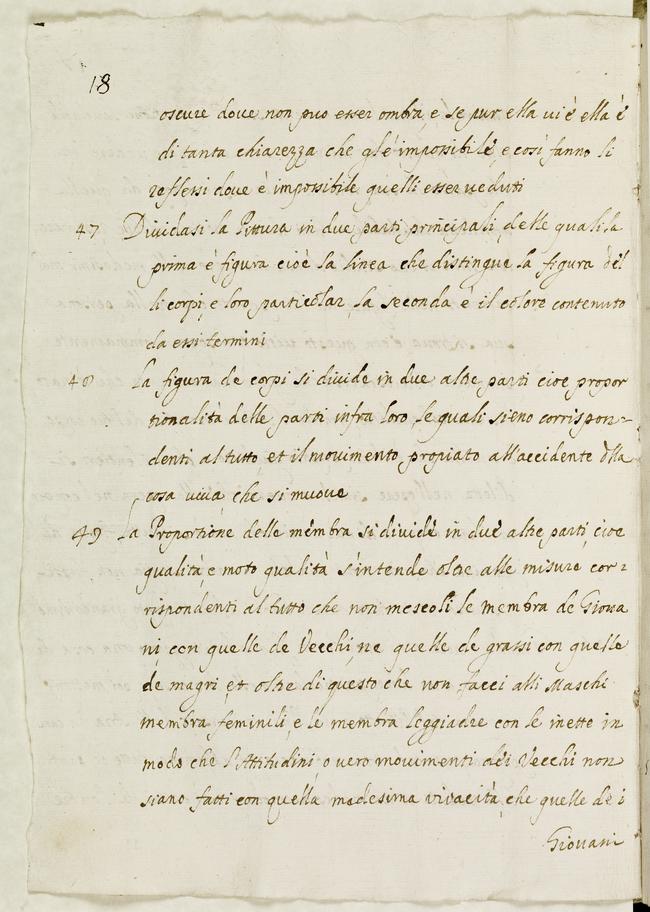 18
oscure dove non può esser ombra, e se pur ella vi è ella è
di tanta chiarezza che gl'è impossibile, e così fanno li
reflessi dove è impossibile quelli esser veduti
47 Dividasi la Pittura in due parti principali, delle quali la
prima è figura cioè la linea che distingue la figura del
li corpi, e loro particolar, la seconda è il colore contenuto
da essi termini
48 La figura de corpi si divide in due altre parti cioe propor
tionalità delle parti infra loro, le quali sieno corrispon=
denti al tutto, et il movimento propiato all'accidente dlla
cosa viva che si muove
49 La Proportione delle membra si divide in due altre parti, cioe
qualità, e moto qualità s'intende oltre alle misure cor=
rispondenti al tutto che non mescoli le membra de Giova
ni, con quelle de Vecchi, ne quelle de grassi con quelle
de magri, et oltre di questo che non facci alli Maschi
membra feminili, e le membra leggiadre con le inette in
modo che l'Attitudini, o vero movimenti dei Vecchi non
siano fatti con quella madesima vivacità, che quelle de i
Giovani